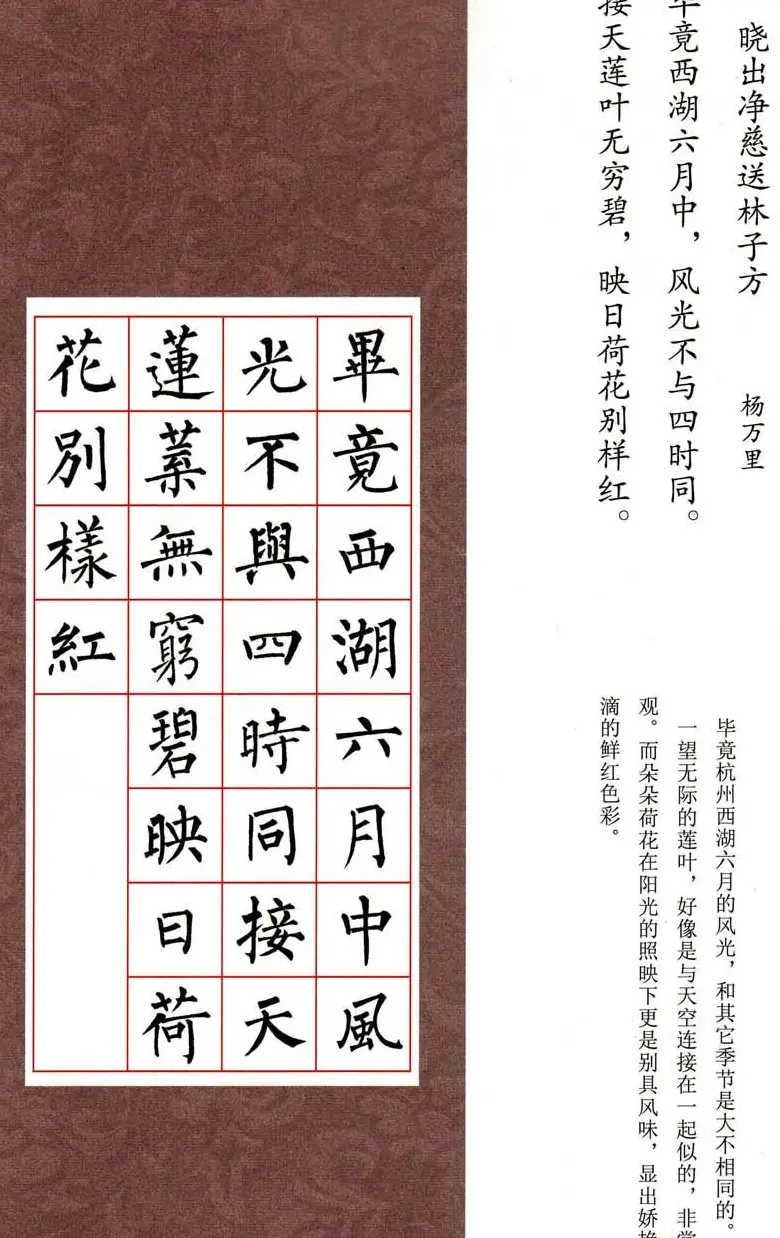 晓出净慈送林子方
杨万里
竟西湖六月中，风光不与四时同。
接天莲叶无穷碧，映日荷花别样红。
毕竟杭州西湖六月的风光，和其它季节是大不相同的。
一望无际的莲叶，好像是与天空连接在一起似的，非常
观。而朵朵荷花在阳光的照映下更是别具风味，显出娇
滴的鲜红色彩。
畢竟西湖六月中風
光不與四時同接天
蓮葉無窮碧映日荷
花別樣紅